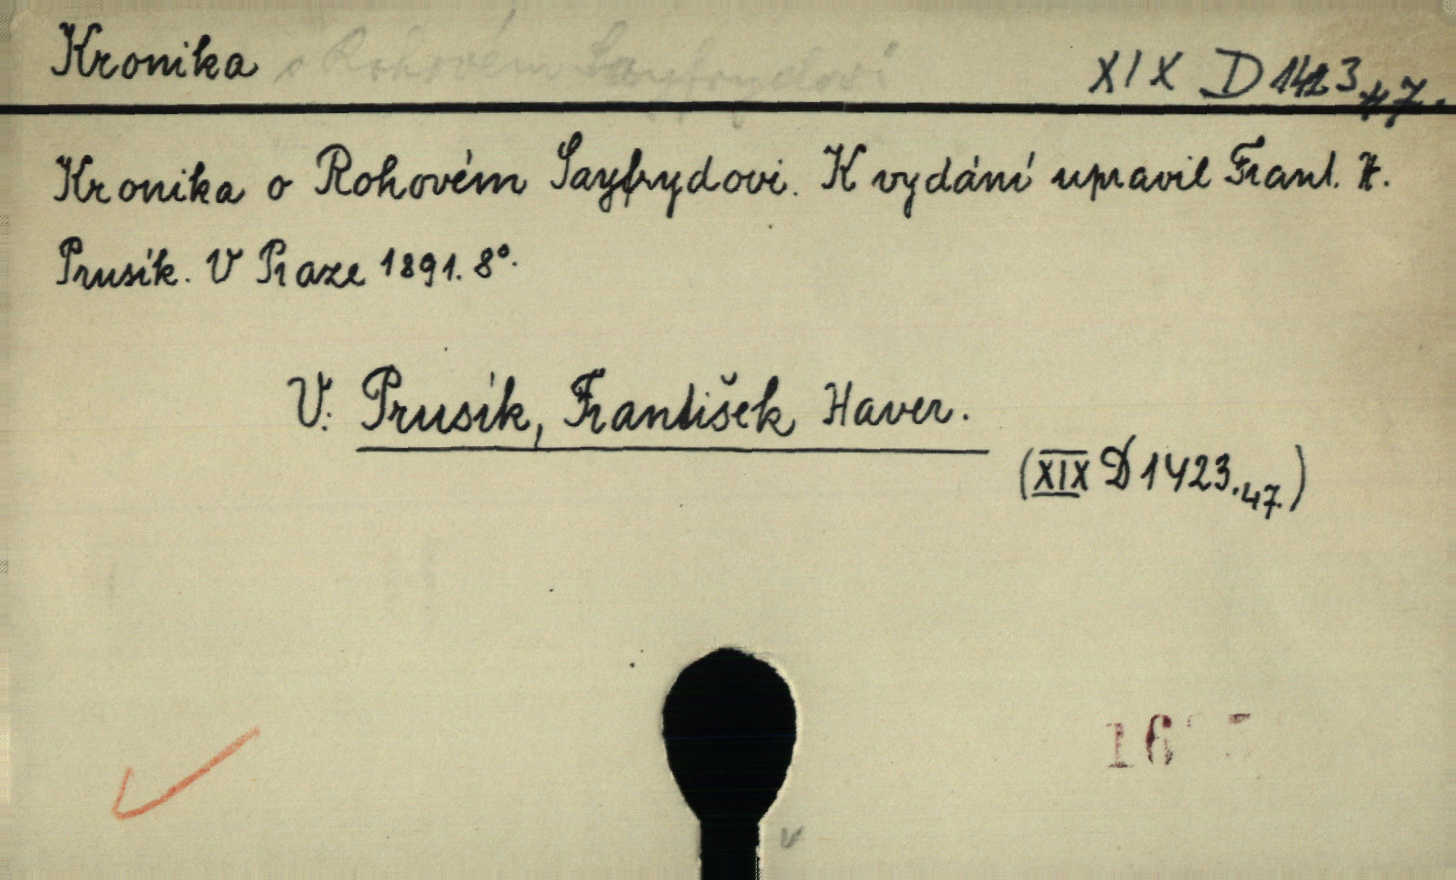 Kronika o Rohovém Sayfrydovi
XIX D 1423,47.
Kronika o Rohovém Sayfrydovi. K vydání upravil Frant. H.
Prusík. V Praze 1891. 8°.
V: Prusík, František Haver.
(XIX D 1423.47)
16